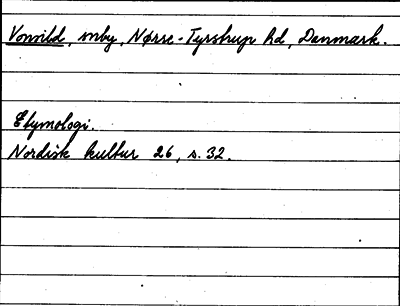 Vonsild, snby, Nørre-Tyrstrup hd, Danmark.
Etymologi.
Nordisk kultur 26, s. 32.